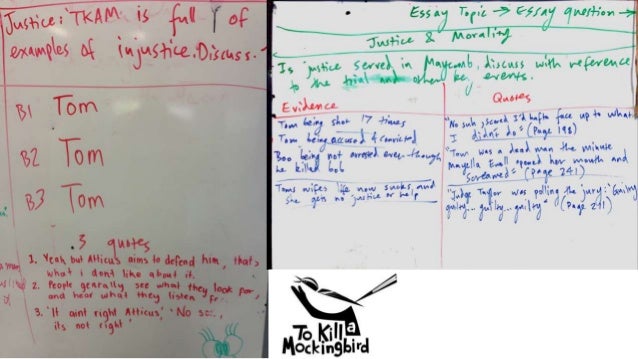 Justice: 'TKAM' is full of
examples of injustice. Discuss.
B1 Tom
B2 Tom
B3 Tom
.3 quotes
1. Yeah but Atticus aims to defend him, that's
what i dont like about it.
2. People genarally see what they look for,
and hear what they listen
3. 'It aint right Atticus,' 'No
its not right'
Essay Topic → Essay question →
Justice & Morality
Is justice served in Maycomb, discuss with reference
to the trial and other key events.
Evidence
Tom being shot 17 times
Tom being accused & convicted
Boo being not arrested even though
he killed bob
Toms wifes life now sucks and
she gets no justice or help
Quotes
"No suh, scared I'd hafta face up to what
I didn't do" (Page 198)
"Tom was a dead man the minute
Mayella Ewell opened her mouth and
screamed" (page 241)
"Judge Taylor was polling the jury: 'Guilty
guilty... guilty... guilty" (Page 211)
To Kill a
Mockingbird